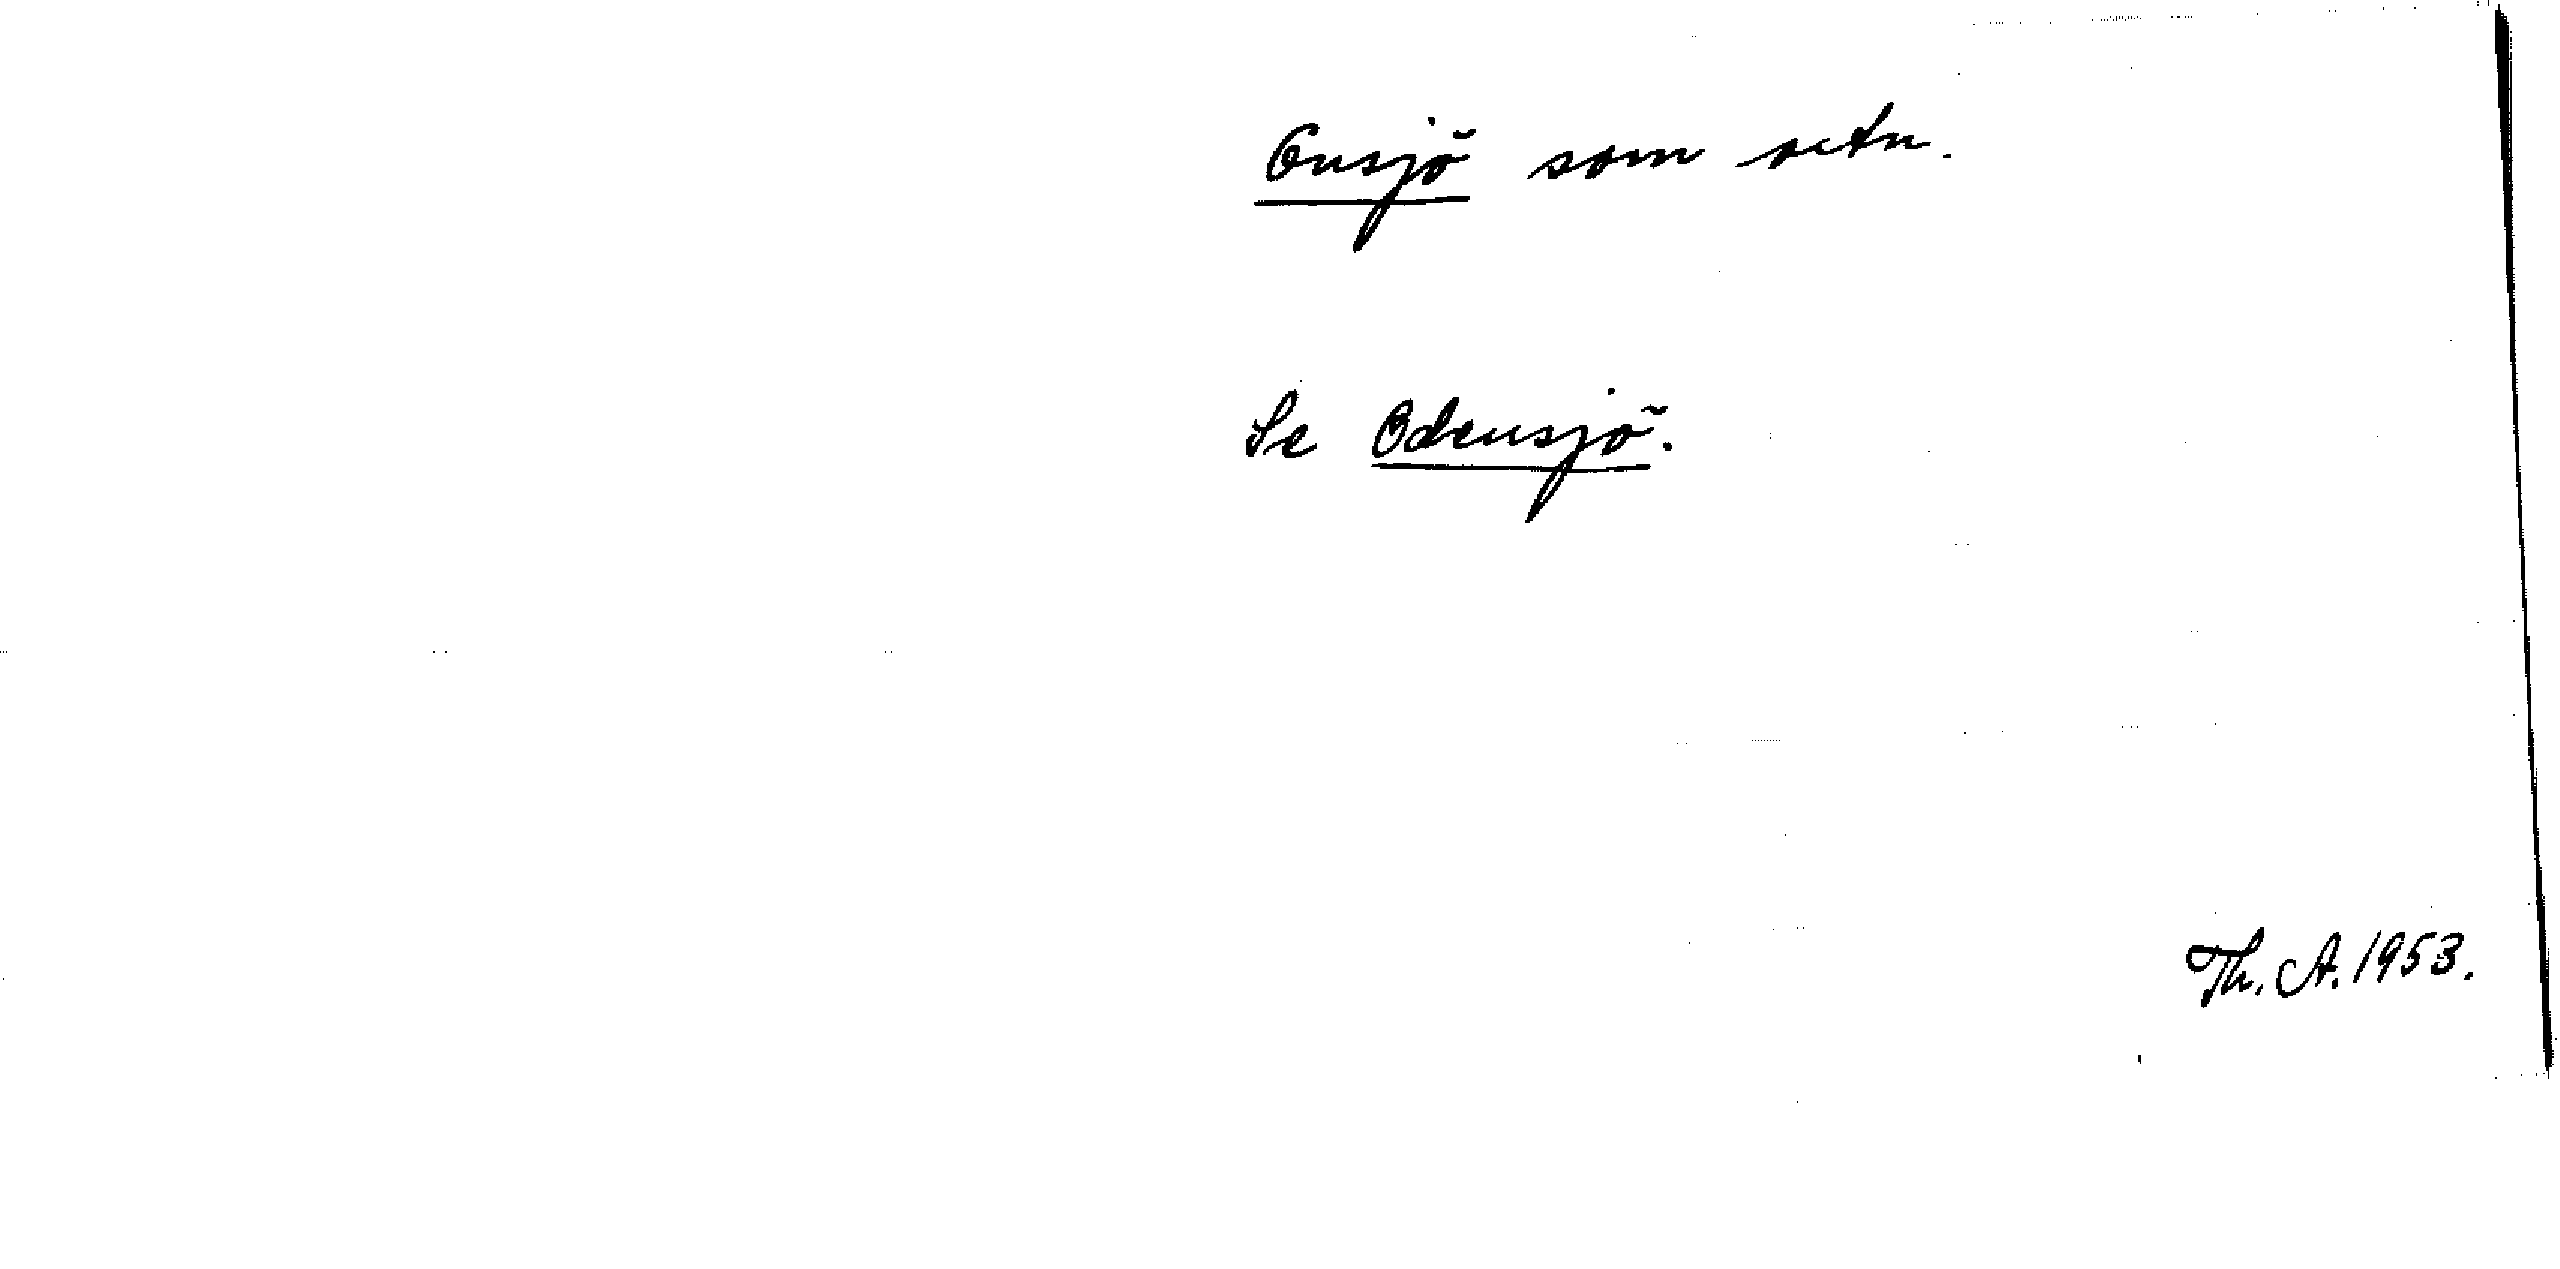 Onsjö som ortn.
Se Odensjö.
Th. A. 1953.